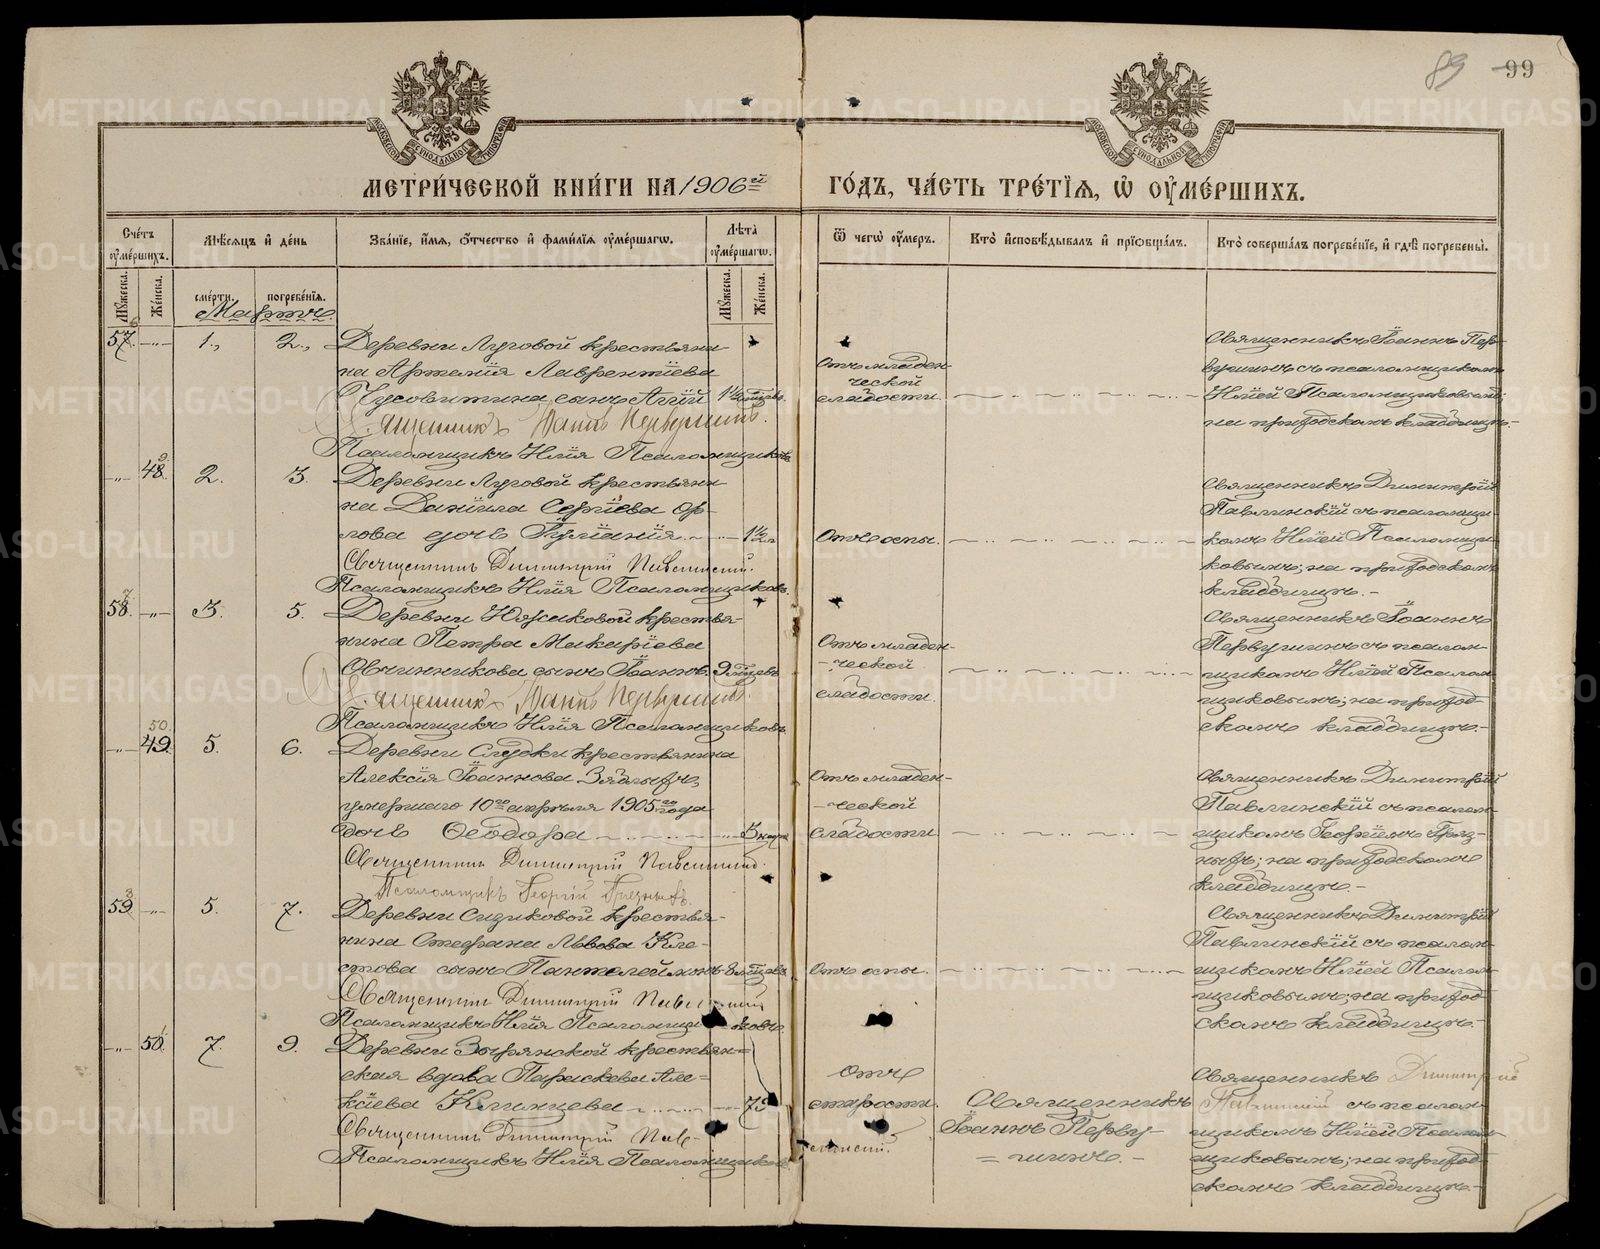 89 99
МЕТРИ́ЧЕСКОЙ КНИ́ГИ НА 1906й ГО́ДЪ, ЧА́СТЬ ТРЕ́ТІѦ, Ѡ҆ ОУ҆МЕ́РШИХЪ.
Сче́тъ оумершихъ.
Мѣсяцъ и день
Зва́нїе, и҆́мя, о҆́тчество и҆ фами́лїя оу҆ме́ршагѡ.
Лѣта оумершагѡ.
Ѿ чегѡ̀ оу҆́меръ.
Кто̀ и҆сповѣ́дывалъ и҆ прїѡбща́лъ.
Кто̀ соверша́лъ погребе́нїе, и҆ гдѣ̀ погребены̀.
Мужеска.
Женска.
смерти.
погребенїя.
Мужеска.
Женска.
Мартъ
57. —"— 1., 2., Деревни Луговой крестьяни-
на Артемія Лаврентіева
Чусовитина сынъ 1½
Священникъ Іоаннъ Первушинъ.
Псаломщикъ Илія Псаломщиковъ
Отъ младен-
ческой
слабости.
Священникъ Іоаннъ Пер-
вушинъ съ псаломщикомъ
Иліей Псаломщиковымъ;
на приходскомъ кладбищѣ.-
—"— 48. 2. 3. Деревни Луговой крестьяни-
на Даніила Сергіева Ор-
лова дочь Іуліанія 1½
Священникъ Димитрій Павлинскій.
Псаломщикъ Илія Псаломщиковъ.
Отъ оспы.
Священникъ Димитрій
Павлинскій съ псаломщи-
комъ Иліей Псаломщи-
ковымъ; на приходскомъ
кладбищѣ.-
58. —"— 3. 5. Деревни Южаковой крестья-
нина Петра Макаріева
Овчинникова сынъ Іоаннъ. 9 мѣсцевъ
Священникъ Іоаннъ Первушинъ.
Псаломщикъ Илія Псаломщиковъ
Отъ младен-
-ческой
слабости.
Священникъ Іоаннъ
Первушинъ съ псалом-
щикомъ Иліей Псалом-
щиковымъ; на приход-
скомъ кладбищѣ.-
50.
—"— 49. 5. 6. Деревни Слудки крестьянина
Алексія Іоаннова Зяблыхъ,
умершаго 10го апрѣля 1905го года
дочь Ѳеодора
Священникъ Димитрій Павлинскій.
Псаломщикъ Георгій Грязныхъ.
Отъ младен-
-ческой
слабости
Священникъ Димитрій
Павлинскій съ псалом-
щикомъ Георгіемъ Гряз-
ныхъ; на приходскомъ
кладбищѣ.-
59. —"— 5. 7. Деревни Сизиковой крестья-
нина Стефана Львова Кле-
стова сынъ Пантелеймонъ 8 мѣсцевъ
Священникъ Димитрій Павлинскій
Псаломщикъ Илія Псаломщиковъ
Отъ оспы.
Священникъ Димитрій
Павлинскій съ псалом-
щикомъ Иліей Псалом-
щиковымъ; на приход-
скомъ кладбищѣ.-
—"— 50. 7. 9. Деревни Зырянской крестьян=
ская вдова Параскева Але=
ксіева Клинцева 79
Священникъ Димитрій Павлинскій.
Псаломщикъ Илія Псаломщиковъ
Отъ
старости.
Священникъ
Іоаннъ Перву-
=шинъ.-
Священникъ Димитрій
Павлинскій съ псалом-
щикомъ Иліей Псалом-
щиковымъ; на приход-
скомъ кладбищѣ.-
METRIKI.GASO-URAL.RU